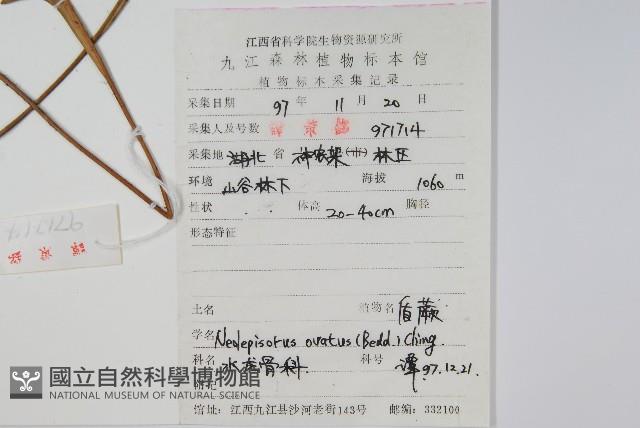 江西省科学院生物资源研究所
九江森林植物标本馆
植物标本采集记录
采集日期 97 年 11 月 20 日
采集人及号数 譚策銘 971714
采集地 湖北 省 神农架 (市) 林区
环境 山谷林下 海拔 1060 m
性状 体高 20-40cm 胸径
形态特征
土名 植物名 盾蕨
学名 Neolepisorus ovatus (Bedd.) Ching
科名 水龙骨科 科号 譚 97.12.21.
附记
馆址:江西九江县沙河老街143号 邮编:332100
971714
譚策銘
國立自然科學博物館
NATIONAL MUSEUM OF NATURAL SCIENCE